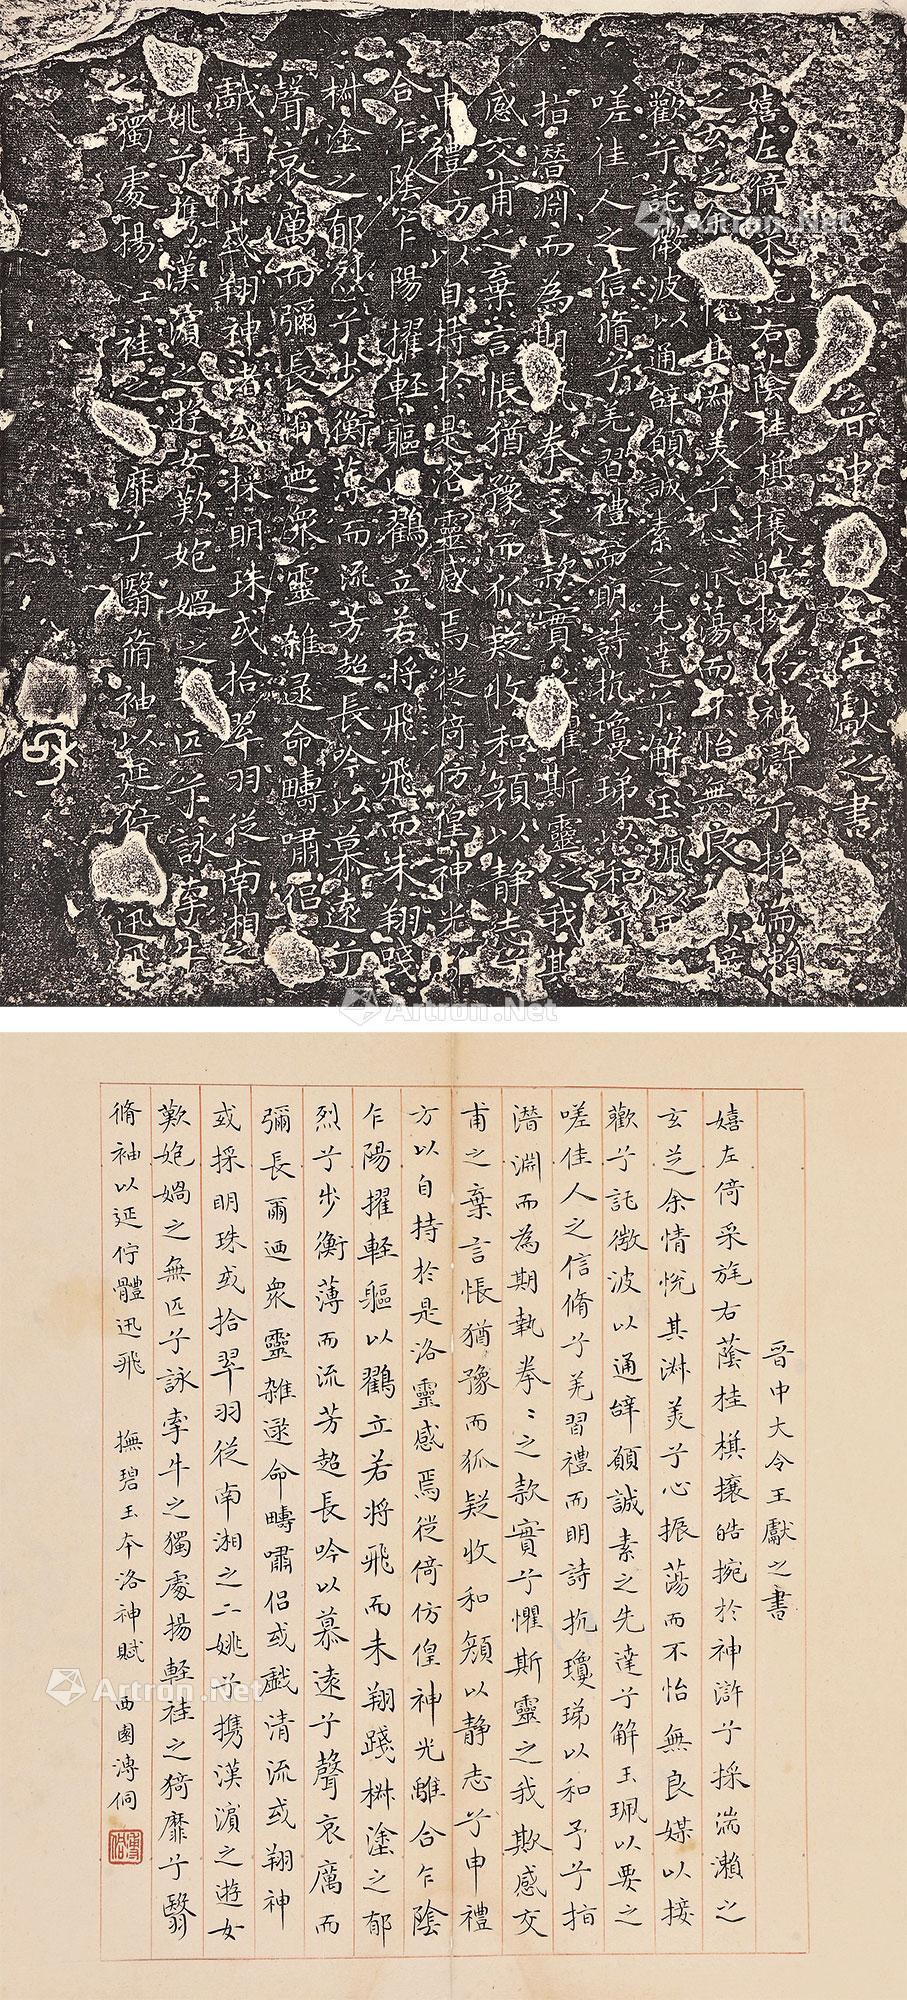 晉中令王獻之書
嬉左倚右蔭桂棋攘皓捥於神滸兮採湍瀨
之玄芝悅其淋美兮心振蕩而不怡無良以接
歡兮託微波以通辞願誠素之先達兮解玉珮以要
嗟佳人之信脩兮羌習禮而明詩抗瓊珶以和予
指潛淵而為期執拳之款實懼斯靈之我欺
感交甫之棄言悵猶豫而狐疑收和顏以静志兮
申禮方以自持於是洛靈感焉徙倚仿偟神光離
合乍陰乍陽擢輕軀以鸖立若將飛飛而未翔踐
椒塗之郁烈兮步衡薄而流芳超長吟以慕遠兮
聲哀厲而彌長爾迺衆靈雜遝命疇嘯侶
戲清流或翔神渚或採明珠或拾翠羽從南湘之
姚兮攜漢濱之遊女歎匏媧之匹兮詠牽牛
之獨處揚輕袿之靡兮翳脩袖以延佇迅飛
晉中大令王獻之書
嬉左倚采旄右蔭桂棋攘皓捥於神滸兮採湍瀨之
玄芝余情悅其淋美兮心振蕩而不怡無良媒以接
歡兮託微波以通辞願誠素之先達兮解玉珮以要之
嗟佳人之信脩兮羌習禮而明詩抗瓊珶以和予兮指
潛淵而為期執拳〻之款實兮懼斯靈之我欺感交
甫之棄言悵猶豫而狐疑收和顏以静志兮申禮
方以自持於是洛靈感焉徙倚仿偟神光離合乍陰
乍陽擢輕軀以鸖立若將飛而未翔踐椒塗之郁
烈兮步衡薄而流芳超長吟以慕遠兮聲哀厲而
彌長爾迺衆靈雜遝命疇嘯侶或戲清流或翔神
或採明珠或拾翠羽從南湘之二姚兮攜漢濱之遊女
歎匏媧之無匹兮詠牽牛之獨處揚輕袿之猗靡兮翳
脩袖以延佇體迅飛 撫碧玉本洛神賦 西園溥侗
溥侗
Artron.Net
Artron.Net
Artron.Net
Artron.Net
Artron.Net